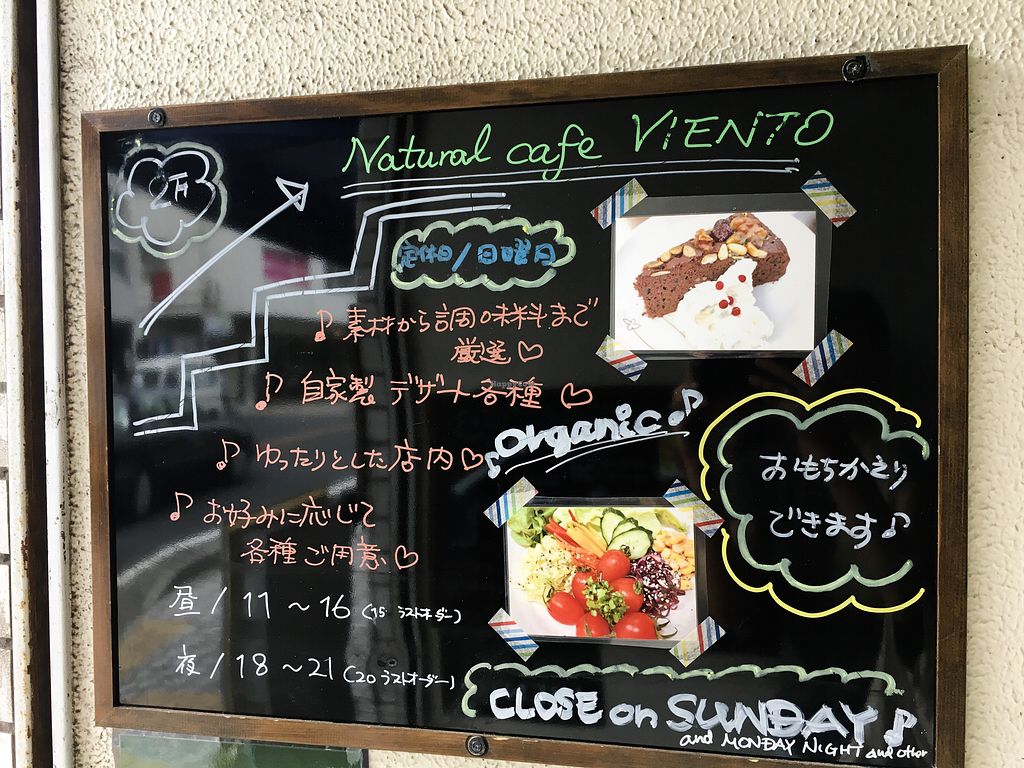 Natural cafe VIENTO
定休日/日曜日
♪ 素材から調味料まで
厳選♡
♪ 自家製 デザート各種 ♡
♪ ゆったりとした店内♡
♪ お好みに応じて
各種ご用意♡
昼/11～16(15 ラストオーダー)
夜/18～21(20 ラストオーダー)
♪organic♪
おもちかえり
できます♪
CLOSE on SUNDAY♪
and MONDAY NIGHT and other